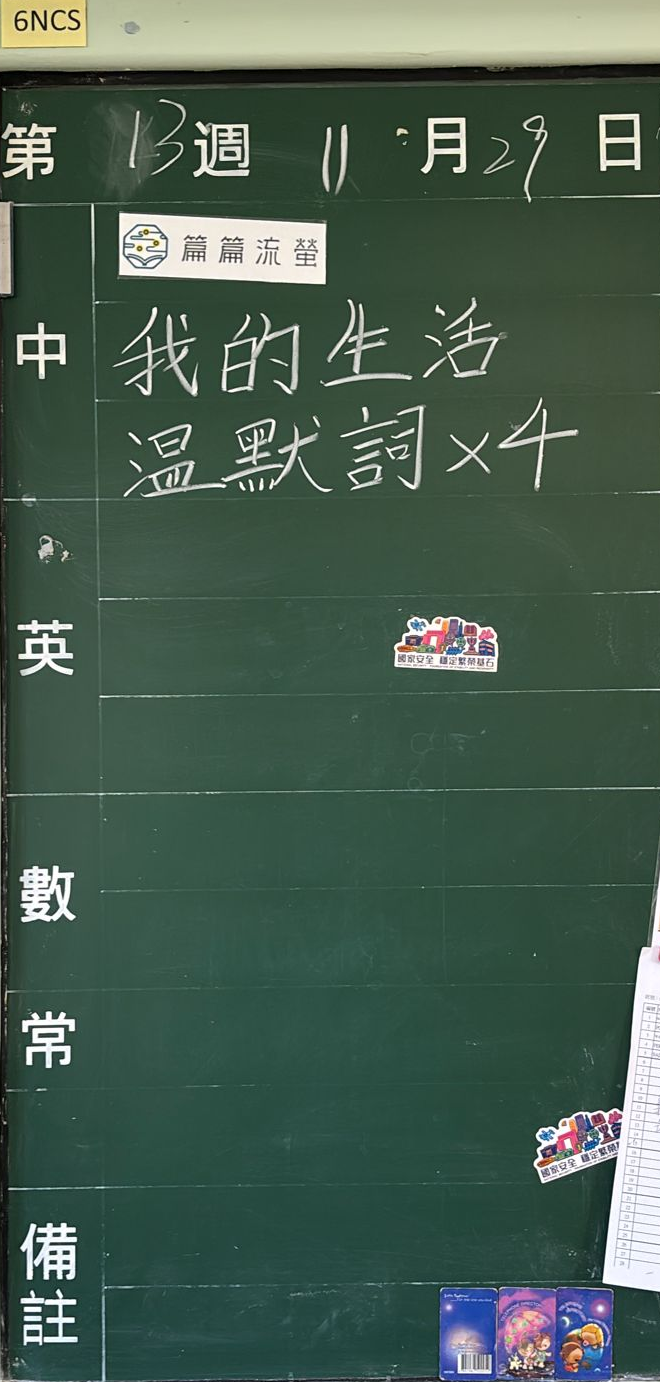 6NCS
第 13 週 11 月 29 日
篇篇流螢
中
我的生活
温默詞×4
英
國家安全 穩定繁榮基石
數
常
國家安全 穩定繁榮
備
註